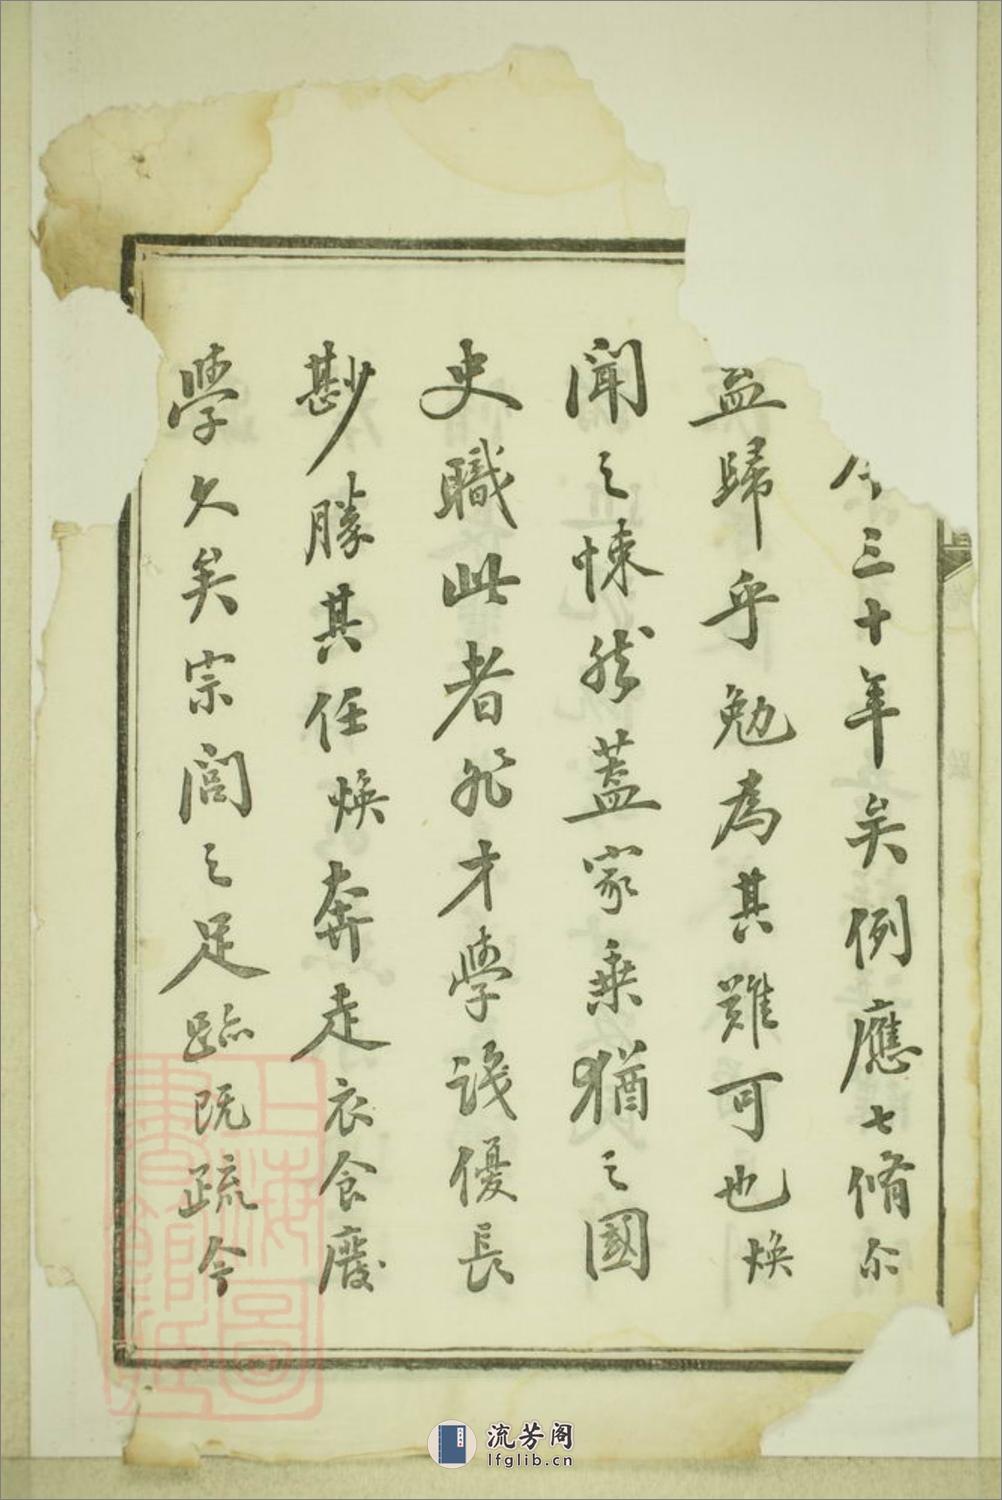 今三十年矣例應七脩尒
盍歸乎勉為其難可也煥
聞之悚然蓋家乗猶之國
史職此者非才學識優長
尠勝其任煥奔走衣食廢
學久矣宗閭之足跡既疏今
上海圖書館藏
流芳阁
lfglib.cn